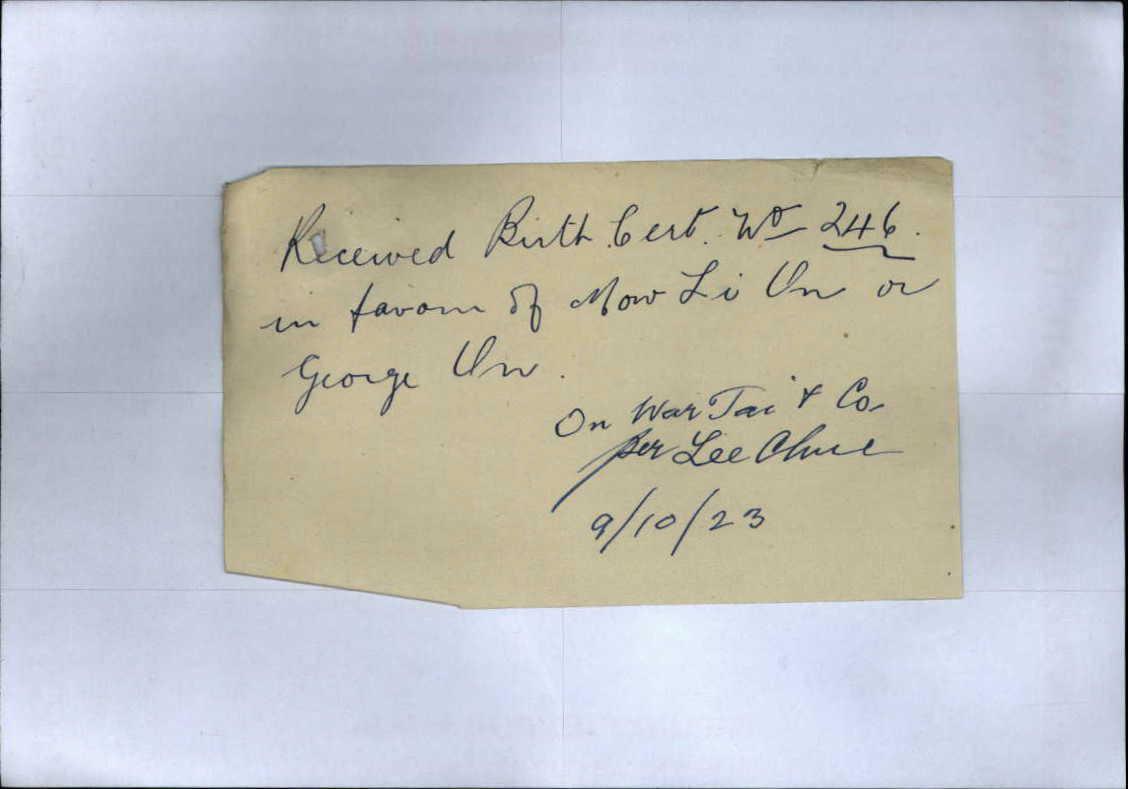 Received Birth Cert. No 246.
in favour of Mow Li Un or
George Un.
On War Tai & Co.
per Lee Chue
9/10/23